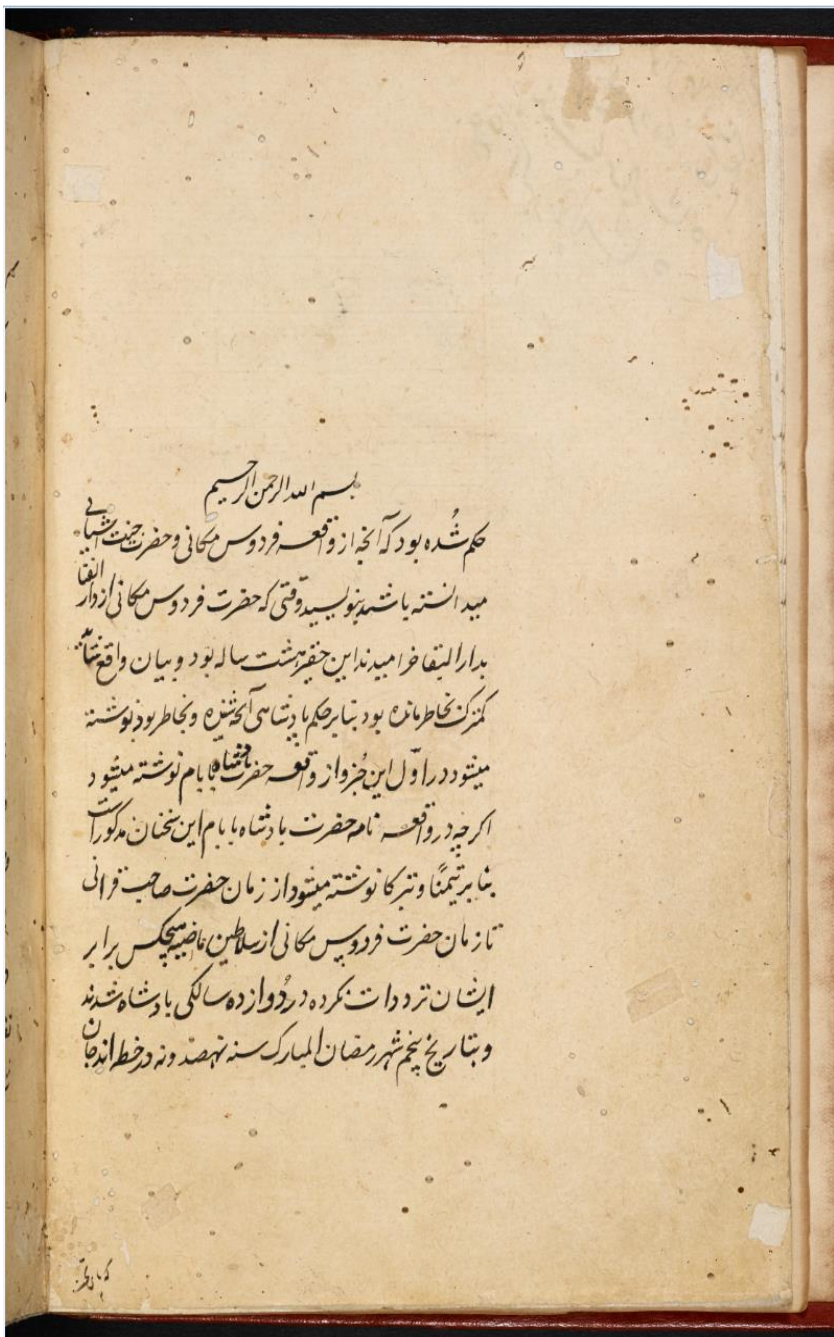 بسم الله الرحمن الرحیم
حکم شده بود که آنچه از واقعه فردوس مکانی و حضرت جنت آشیانی
میدانسته باشید بنویسید وقتی که حضرت فردوس مکانی از دار الفنا
بدار البقا خرامیدند این حقیر هشت ساله بود و بیان واقع شاید
کمترک بخاطر مانده بود بنابر حکم پادشاهی آنچه شنیده و بخاطر بود نوشته
میشود در اول این جزو از واقعه حضرت پادشاه بابام نوشته میشود
اگرچه در واقعه نامه حضرت پادشاه بابام این سخنان مذکور است
بنابر تیمنًا و تبرکا نوشته میشود از زمان حضرت صاحب قرانی
تا زمان حضرت فردوس مکانی از سلاطین ماضیه هیچکس برابر
ایشان ترددات نکرده در دوازده سالگی پادشاه شدند
و بتاریخ پنجم شهر رمضان المبارک سنه نهصد و نه در خطه اندجان